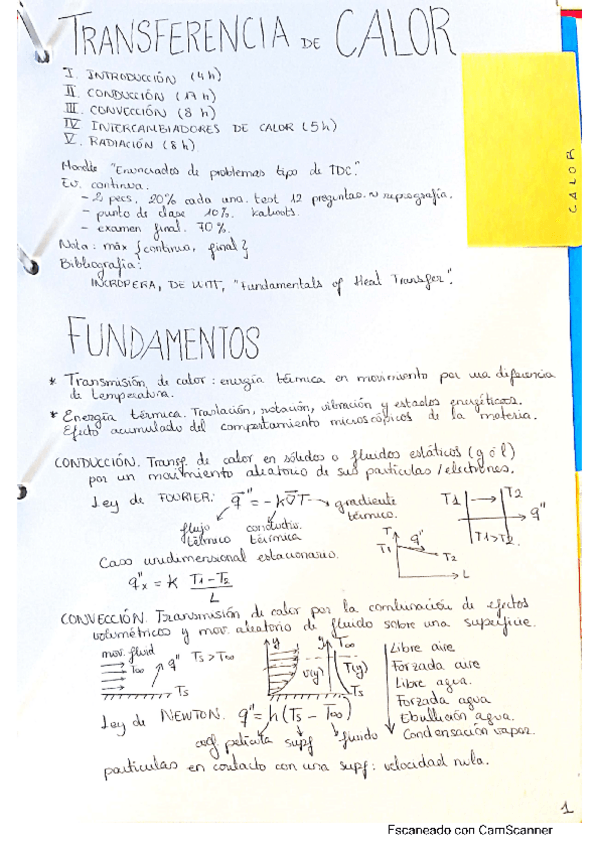 TRANSFERENCIA DE CALOR
I. INTRODUCCIÓN (4h)
II. CONDUCCIÓN (17 h)
III. CONVECCIÓN (8 h)
IV INTERCAMBIADORES DE CALOR (5h)
V. RADIACIÓN (8h)
CALOR
Moodle "Enunciados de problemas tipo de TDC."
Ev. continua:
- 2 pecs. 20% cada una. test 12 preguntas. ~ reprografía.
- punto de clase 10%. kahoots.
- examen final. 70%.
Nota: máx {continua, final}
Bibliografía:
INCROPERA, DE WITT, "Fundamentals of Heat Transfer".
FUNDAMENTOS
* Transmisión de calor: energía térmica en movimiento por una diferencia
de temperatura.
* Energía térmica. Traslación, rotación, vibración y estados energéticos.
Efecto acumulado del comportamiento microscópicos de la materia.
CONDUCCIÓN. Transf. de calor en sólidos o fluidos estáticos (g ó l)
por un movimiento aleatorio de sus partículas/electrones.
Ley de FOURIER: q̄" = -k∇̄T → gradiente
térmico.
flujo térmico
conductiv. térmica
T1 T2
q"
T1>T2
T
T1 q"
T2
L
Caso unidimensional estacionario.
q"x = K (T1-T2)/L
CONVECCIÓN. Transmisión de calor por la combinación de efectos
volumétricos y mov. aleatorio de fluido sobre una superficie.
mov. fluid
T∞ q" Ts>T∞
Ts
y
v(y)
y T∞
T(y)
Ts
Libre aire
Forzada aire
Libre agua.
Forzada agua
Ebullición agua.
Condensación vapor.
Ley de NEWTON. q" = h(Ts - T∞)
coef. película supf fluido
partículas en contacto con una supf: velocidad nula.
1
Escaneado con CamScanner